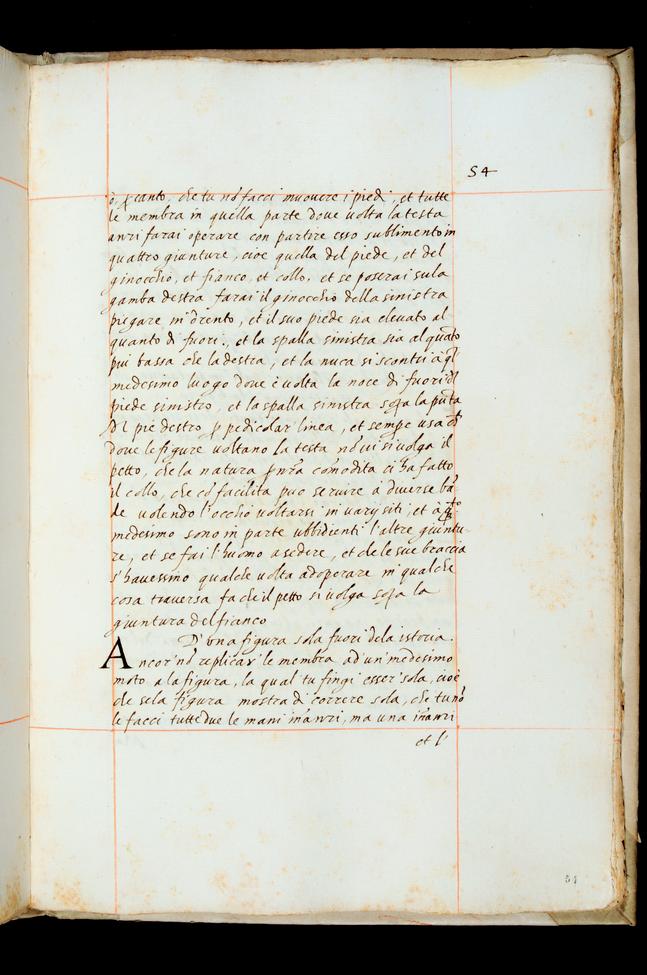 54
ò p canto, che tu nō facci muovere i piedi, et tutte
le membra in quella parte dove volta la testa
anzi farai operare con partire esso sublimento in
quattro giunture, cioe quella del piede, et del
ginocchio, et fianco, et collo, et se poserai sula
gamba destra farai il ginocchio della sinistra
piegare in drento, et il suo piede sia elevato al
quanto di fuori, et la spalla sinistra sia al quāto
piu bassa che la destra, et la nuca si scontri à q̄l
medesimo luogo dove è volta la noce di fuori dl
piede sinistro, et la spalla sinistra sop̄a la pūta
dl piè destro p ppedicolar linea, et sempe usa ch̄
dove le figure voltano la testa nō vi si volga il
petto, che la natura p nr̄a comōdita ci ha fatto
il collo, che cō facilita puo servire à diverse bā
de volendo l'occhio voltarsi in varij siti, et à q̄sto
medesimo sono in parte ubbidienti l'altre giuntu-
re, et se fai l'huomo a sedere, et che le sue braccia
s'havessino qualche volta adoperare in qualche
cosa traversa fa che il petto si volga sop̄a la
giuntura del fianco
D'una figura sola fuori dela istoria.
Ancor nō replicar le membra ad un medesimo
moto a la figura, la qual tu fingi esser sola, cioè
che se la figura mostra di correre sola, che tu nō
le facci tutte due le mani inānzi, ma una inānzi
et l'
54